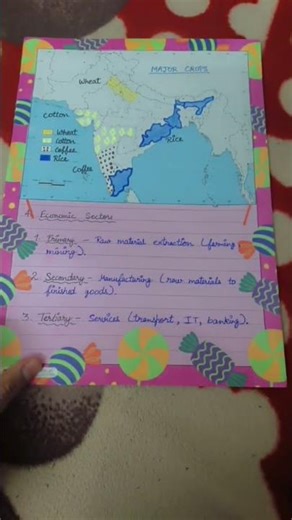 MAJOR CROPS
Wheat
Cotton
Wheat
Cotton
Coffee
Rice
Rice
Coffee
Economic Sectors
1. Primary - Raw material extraction (farming
mining).
2. Secondary - Manufacturing (raw materials to
finished goods).
3. Tertiary - Services (transport, IT, banking).